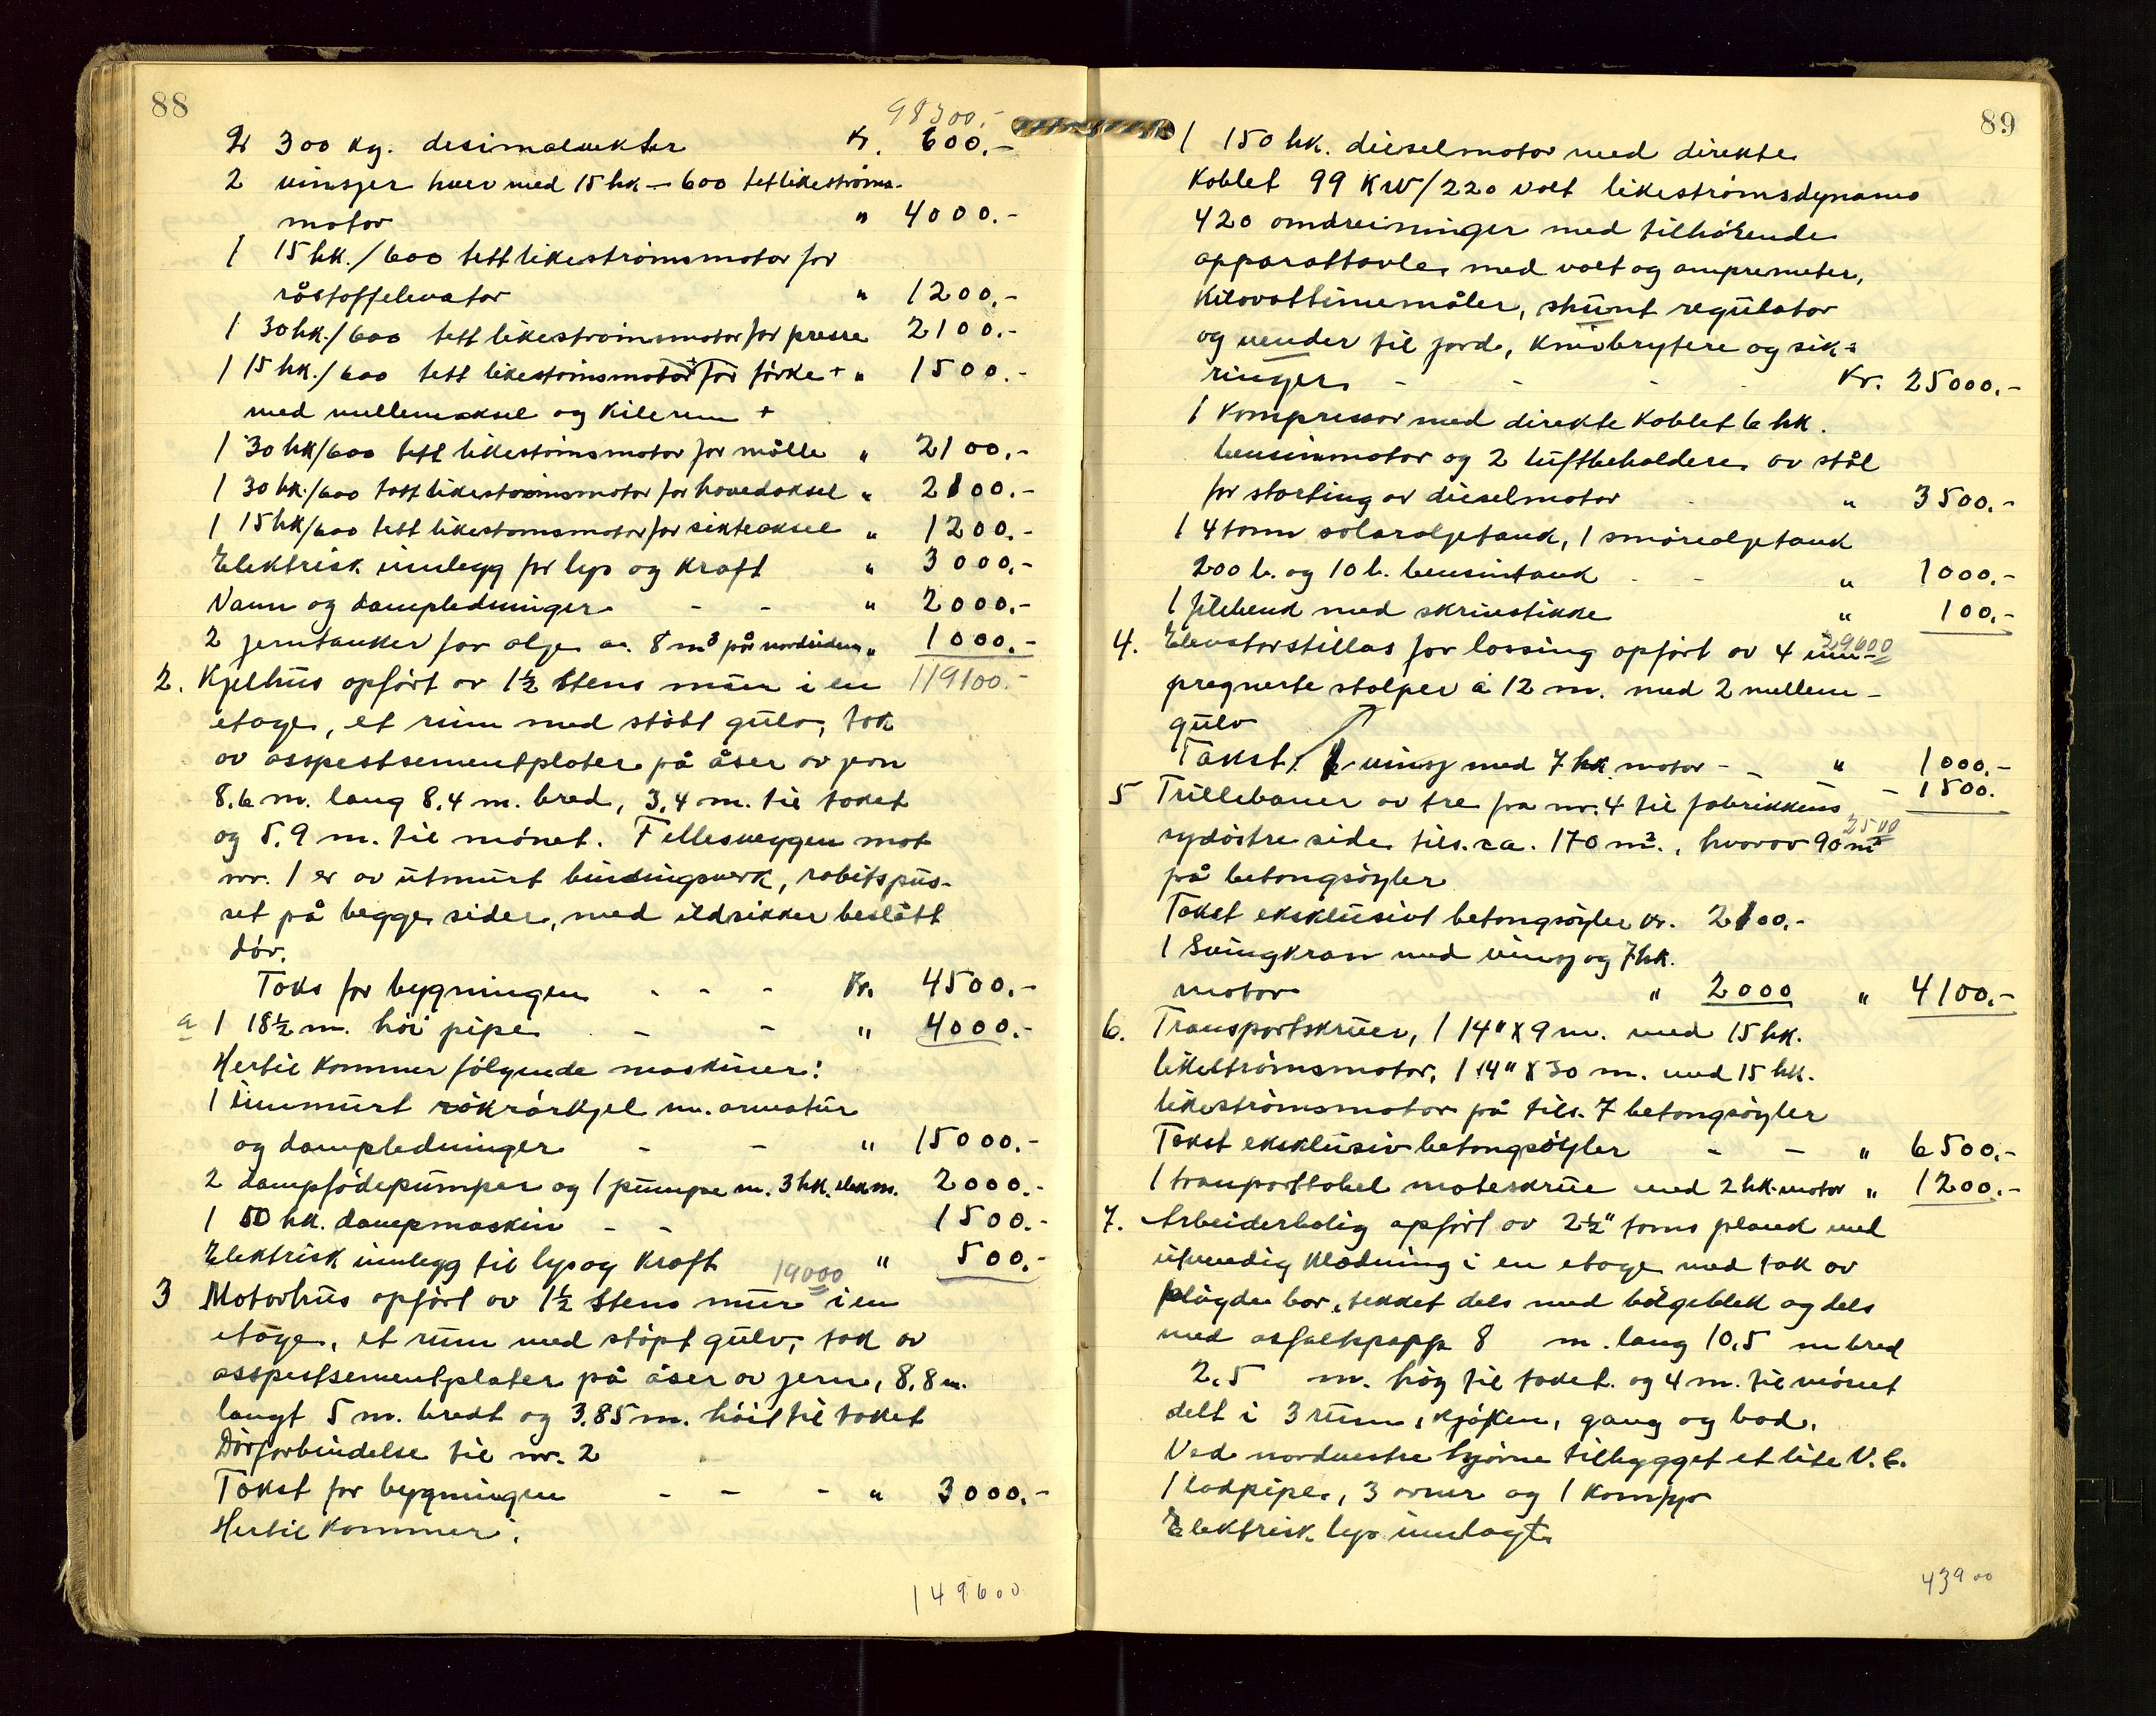 88
98300.-
2 300 kg. desimalvekter Kr. 600.-
2 vinsjer hver med 15 hk – 600 tett likestrøms-
motor " 4000.-
1 15 hk./600 tett likestrømsmotor for
råstoffelevator " 1200.-
1 30 hk./600 tett likestrømsmotor for presse 2100.-
1 15 hk./600 tett likestrømsmotor for tørke + " 1500.-
med mellemaksel og kilerem +
1 30 hk/600 tett likestrømsmotor for mølle " 2100.-
1 30 hk./600 tett likestrømsmotor for hovedaksel " 2100.-
1 15 hk/600 tett likestrømsmotor for sikteaksel " 1200.-
Elektrisk innlegg for lys og kraft " 3000.-
Vann og dampledninger - - " 2000.-
2 jerntanker for olje a. 8 m³ på nordsiden " 1000.-
2. Kjelhus opført av 1½ stens mur i en 119100.-
etage, et rum med støbt gulv, tak
av asspestsementplater på åser av jern
8.6 m. lang 8.4 m. bred, 3.4 m. til taket
og 5.9 m. til mønet. Fellesveggen mot
nr. 1 er av utmurt bindingsverk, rabitspus-
set på begge sider, med ildsikker beslått
dør.
Taks for bygningen - - - Kr. 4500.-
a 1 18½ m. høi pipe - - " 4000.-
Hertil kommer følgende maskiner:
1 innmurt røkrørkjel m. armatur
og dampledninger - - " 15000.-
2 dampfødepumper og 1 pumpe m. 3 hk. elek m. 2000.-
1 50 hk. dampmaskin - - 1500.-
Elektrisk innlegg til lys og kraft " 500.-
19000
3 Motorhus opført av 1½ stens mur i en
etage, et rum med støpt gulv, tak av
asspestsementplater på åser av jern, 8,8 m.
langt 5 m. bredt og 3.85 m. høit til taket
Dørforbindelse til nr. 2
Takst for bygningen - - - " 3000.-
Hertil kommer:
149600
89
1 150 hk. dieselmotor med direkte
koblet 99 KW/220 volt likestrømsdynamo
420 omdreininger med tilhørende
apparattavle med volt og ampremeter,
kilovattimemåler, shunt regulator
og vender til jord, knivbrytere og sik=
ringer - - - - Kr. 25000.-
1 kompressor med direkte koblet 6 hk.
bensinmotor og 2 luftbeholdere av stål
for starting av dieselmotor - " 3500.-
1 4 tonn solaroljetank, 1 smøreoljetank
200 l. og 10 l. bensintank - - " 1000.-
1 filebenk med skruestikke " 100.-
29600
4. Elevatorstillas for lossing opført av 4 im-
pregnerte stolper á 12 m. med 2 mellem-
gulv
Takst, 1 vinsj med 7 hk. motor - - " 1000.-
5 Trillebaner av tre fra nr. 4 til fabrikkens - 1500.
2500
sydøstre side tils. ca. 170 m²., hvorav 90 m²
på betongsøyler
Takst eksklusivt betongsøyler kr. 2100.-
1 Svingkran med vinsj og 7 hk.
motor " 2000 " 4100.-
6. Transportskruer, 1 14" x 9 m. med 15 hk.
likestrømsmotor, 1 14" x 30 m. med 15 hk.
likestrømsmotor på tils. 7 betongsøyler
Takst eksklusiv betongsøyler - - " 6500.-
1 transportabel mateskrue med 2 hk. motor " 1200.-
7. Arbeiderbolig opført av 2½" toms plank med
utvendig klædning i en etage med tak av
pløgde bor, tekket dels med bølgeblek og dels
med asfaltpapp 8 m. lang 10,5 m bred
2,5 m. høg til taket og 4 m. til mønet
delt i 3 rum, kjøken, gang og bod.
Ved nordvestre hjørne tilbygget et lite V.C.
1 lodpipe, 3 ovner og 1 komfyr
Elektrisk lys innlagt.
43900